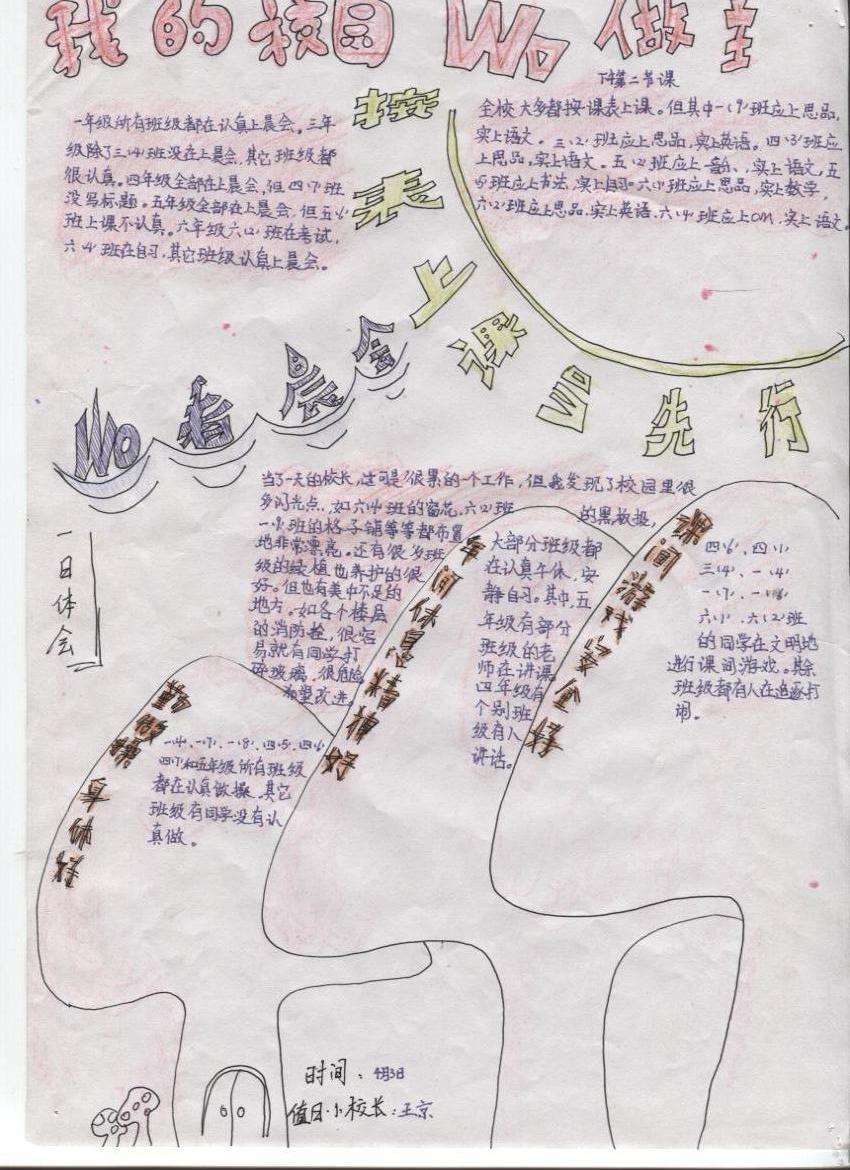 我的校园 Wo 做主
一年级所有班级都在认真上晨会。三年
级除了三(4)班没在上晨会,其它班级都
很认真。四年级全部在上晨会,但四(1)班
没写标题。五年级全部在上晨会,但五(6)
班上课不认真。六年级六(2)班在考试,
六(4)班在自习,其它班级认真上晨会。
按表上课Wo先行
下午第二节课
全校大多都按课表上课。但其中一(9)班应上思品,
实上语文。三(2)班应上思品,实上英语。四(3)班应
上思品,实上语文。五(2)班应上音乐,实上语文,五
(5)班应上书法,实上自习。六(1)班应上思品,实上数学,
六(2)班应上思品,实上英语,六(4)班应上OM,实上语文。
Wo看晨会
一日体会
当了一天的校长,这可是个很累的一个工作,但我发现了校园里很
多闪光点,如六(4)班的窗花,六(2)班的黑板报,
一(9)班的格子铺等等都布置
地非常漂亮。还有很多班
级的绿植也养护的很
好。但也有美中不足的
地方。如各个楼层
的消防拴,很容
易就有同学打
碎玻璃,很危险
希望改进。
课间做操身体棒
一(4)、一(7)、一(8)、四(5)、四(6)
四(1)和五年级所有班级
都在认真做操。其它
班级有同学没有认
真做。
午间休息
大部分班级都
在认真午休,安
静自习。其中,五
年级有部分
班级的老
师在讲课。
四年级有
个别班
级有人
讲话。
课间游戏
四(6)、四(1)
三(4)、一(4)
一(7)、一(8)
六(1)、六(2)班
的同学在文明地
进行课间游戏。其余
班级都有人在追逐打
闹。
时间:4月3日
值日小校长:王京